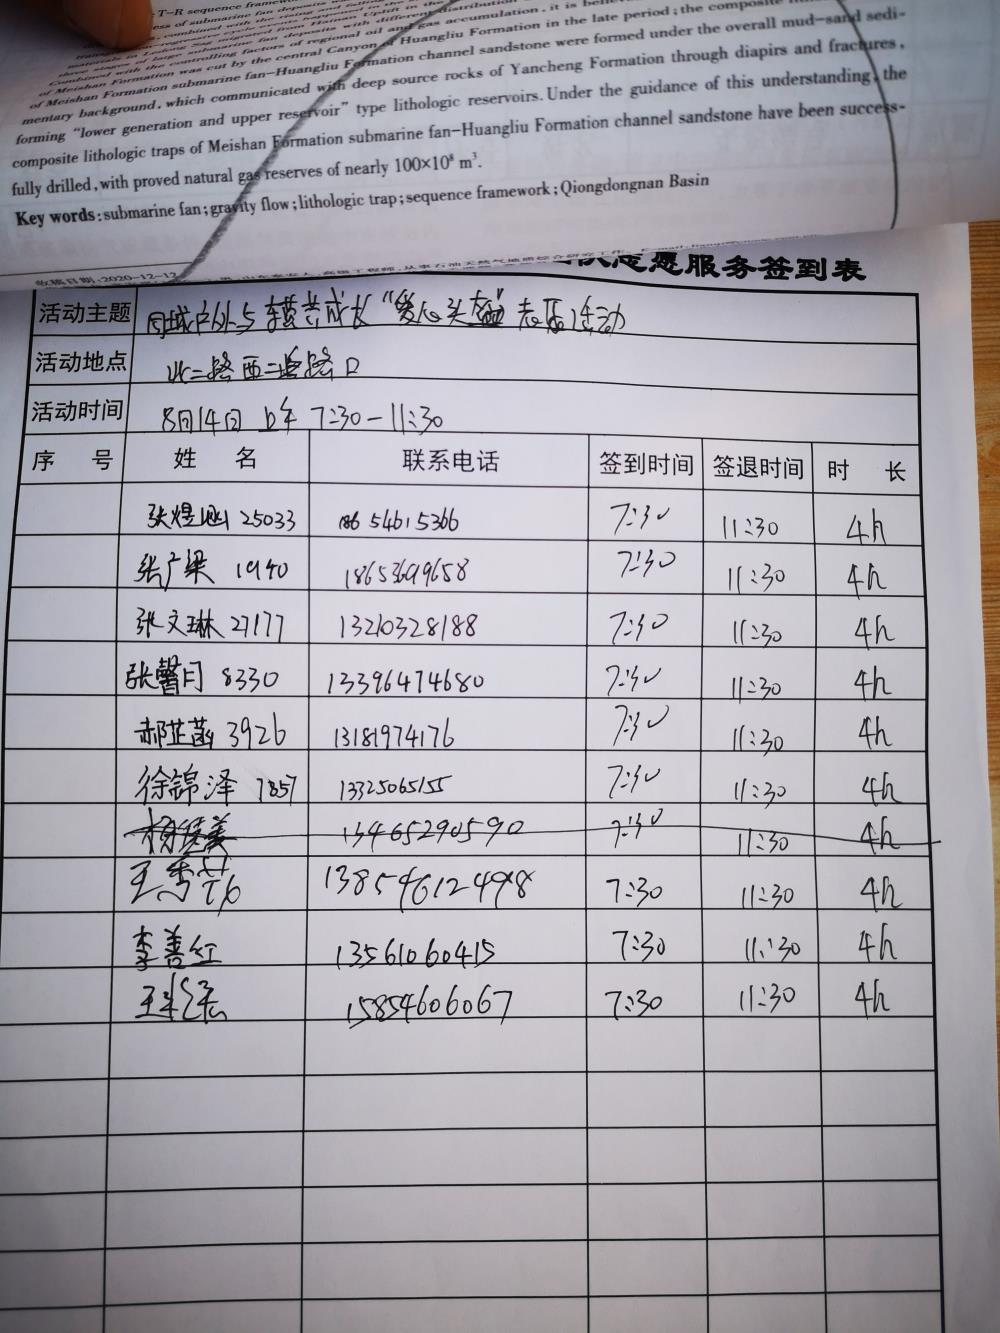 of Meishan Formation was cut by the central Canyon of Huangliu Formation in the late period; the composite
of Meishan Formation submarine fan-Huangliu Formation channel sandstone were formed under the overall mud-sand sedi-
mentary background, which communicated with deep source rocks of Yancheng Formation through diapirs and fractures,
forming "lower generation and upper reservoir" type lithologic reservoirs. Under the guidance of this understanding, the
composite lithologic traps of Meishan Formation submarine fan-Huangliu Formation channel sandstone have been success-
fully drilled, with proved natural gas reserves of nearly 100×10⁸ m³.
Key words: submarine fan; gravity flow; lithologic trap; sequence framework; Qiongdongnan Basin
收稿日期:2020-12-12
志愿服务签到表
活动主题 同城户外与 共成长 "爱心头盔" 志愿活动
活动地点 北二路西二路路口
活动时间 8月14日 上午 7:30-11:30
序 号 姓 名 联系电话 签到时间 签退时间 时 长
张煜 25033 18654615366 7:30 11:30 4h
张广梁 1940 18653699658 7:30 11:30 4h
张文琳 27177 13210328188 7:30 11:30 4h
张馨月 8330 13396474680 7:30 11:30 4h
郝芷菡 3926 13181974176 7:30 11:30 4h
徐锦泽 7857 13325065155 7:30 11:30 4h
杨佳美 13465290590 7:30 11:30 4h
王秀 13854612498 7:30 11:30 4h
李善红 13561060415 7:30 11:30 4h
王 15854606067 7:30 11:30 4h